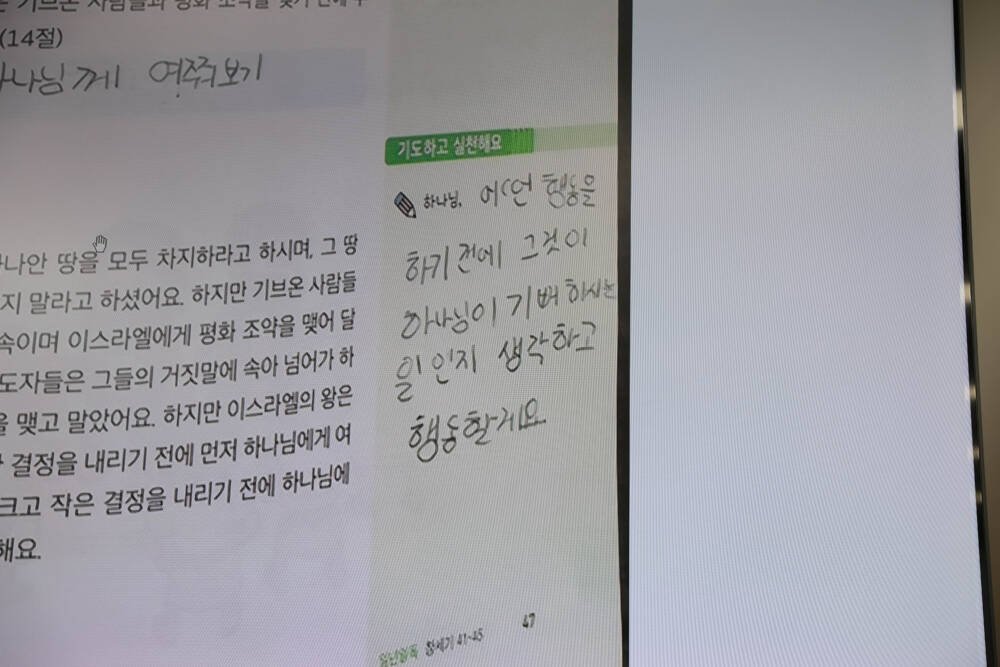 기브온 사람들과 평화 조약을 맺기 전에
(14절)
하나님께 여쭈어보기
기도하고 실천해요
하나님, 어떤 행동을
하기 전에 그것이
하나님이 기뻐하시는
일인지 생각하고
행동할게요
가나안 땅을 모두 차지하라고 하시며, 그 땅
지 말라고 하셨어요. 하지만 기브온 사람들
속이며 이스라엘에게 평화 조약을 맺어 달
도자들은 그들의 거짓말에 속아 넘어가 하
을 맺고 말았어요. 하지만 이스라엘의 왕은
결정을 내리기 전에 먼저 하나님에게 여
크고 작은 결정을 내리기 전에 하나님에
해요.
일년일독 창세기 41-45
47